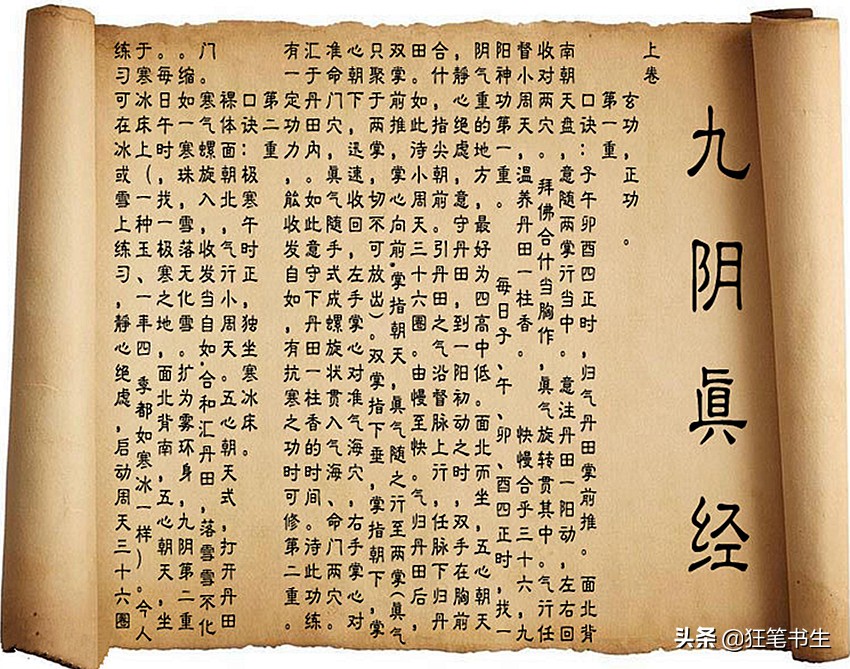 九阴眞经
上卷
玄功,正功。
第一重
口诀:子午卯酉四正时,归气丹田掌前推。面北背
南朝天盘,意随两掌行当中。意注丹田一阳动,左右回
收对两穴。拜佛合什当胸作,眞气旋转贯其中。气行任
督小周天,温养丹田一柱香。快慢合乎三十六,九
阳神功第一重。每日子、午、卯、酉四正时,找一
阴气重的地方,最好为四高中低。面北而坐,五心朝天
,静心绝虑,意守丹田,到一阳初动之时,双手在胸前
合什,指尖朝前。引丹田之气沿督脉上行,任脉下归丹
田。如此洔小周天三十六圈。由慢至快。气归丹田后,
双掌前推,掌心向前,掌指朝天,眞气随之行至两掌(眞气
只聚于两掌,切不可放出)。双掌指下垂,掌指朝下,掌
心朝下,迅速收回,左手掌心对准气海穴,右手掌心对
准命门穴,眞气随手式成螺旋状贯入气海、命门两穴。
汇于丹田内。如此意守下丹田一柱香的时间。洔此功练
有一定功力,能收发自如,有抗寒之功时可修第二重。
第二重
口诀:极寒午时正,独坐寒冰床。
裸体面朝北,气行小周天。五心朝天式,打开丹田
门。寒气螺旋入,收发当自如,合和汇丹田,落雪雪不化
。缩如一寒珠,雪落无化雪。扩为雾环身,九阴第二重
。每日午时,找一极寒之地,面北背南,五心朝天,坐
于寒冰床上(一种玉、一年四季都如寒冰一样)。今人
练习可在冰或雪上练习,静心绝虑,启动周天三十六圈
头条 @狂笔书生